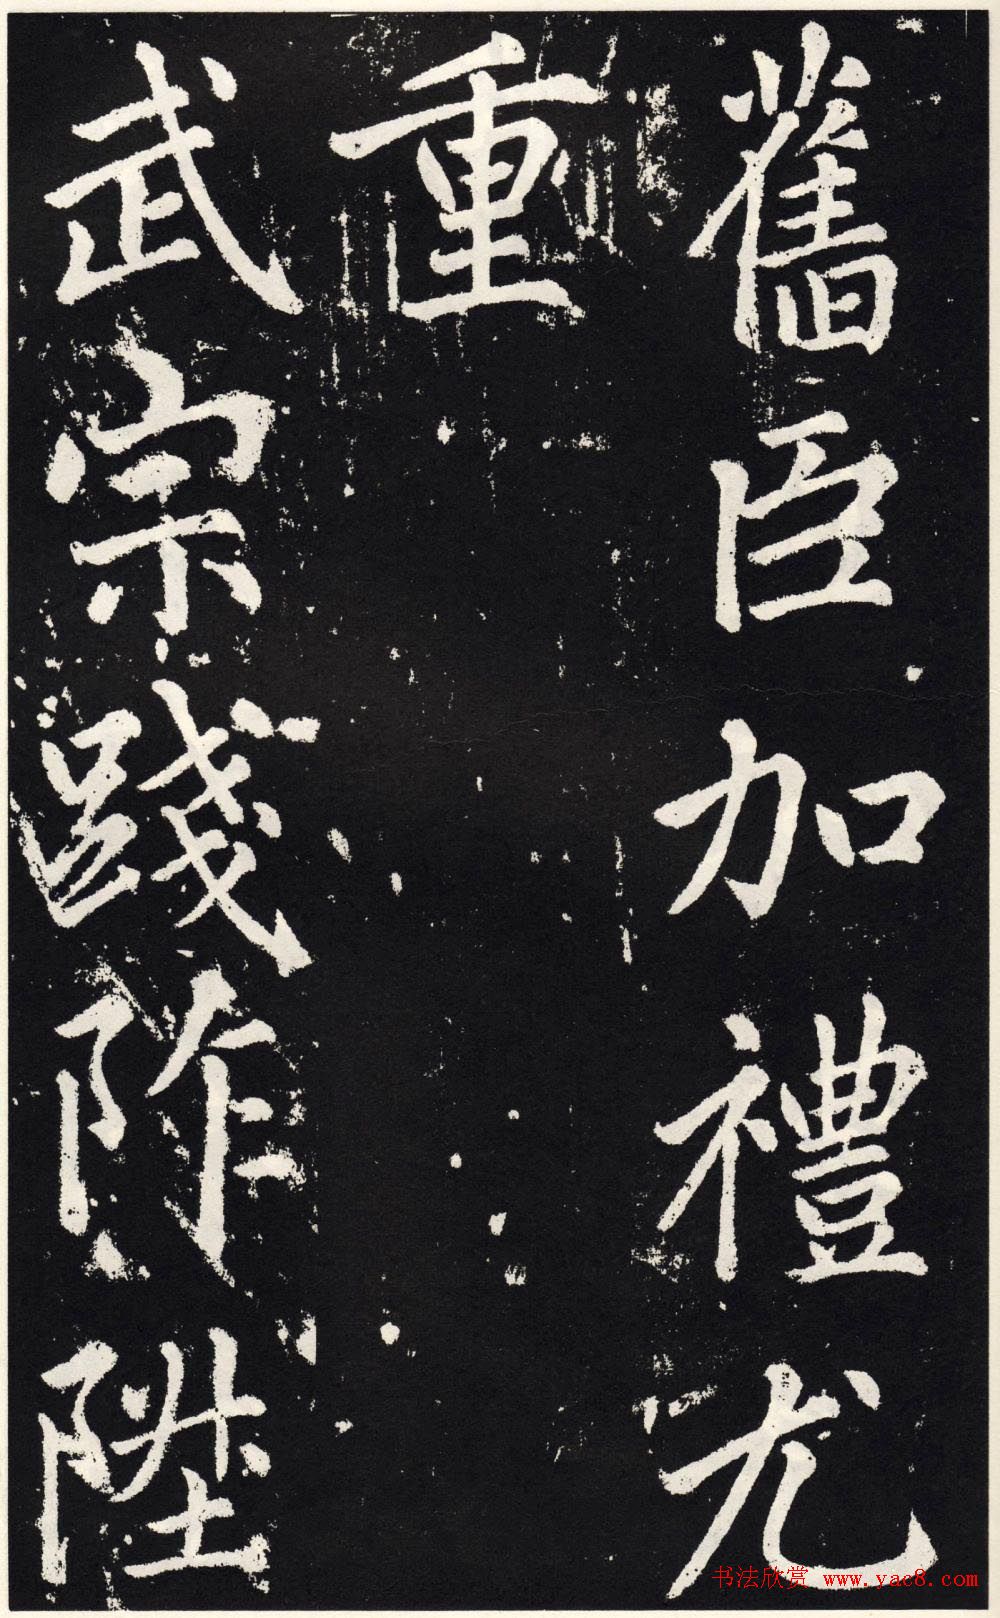 舊臣加禮尤
重
武宗踐阼陞
书法欣赏 www.yac8.com